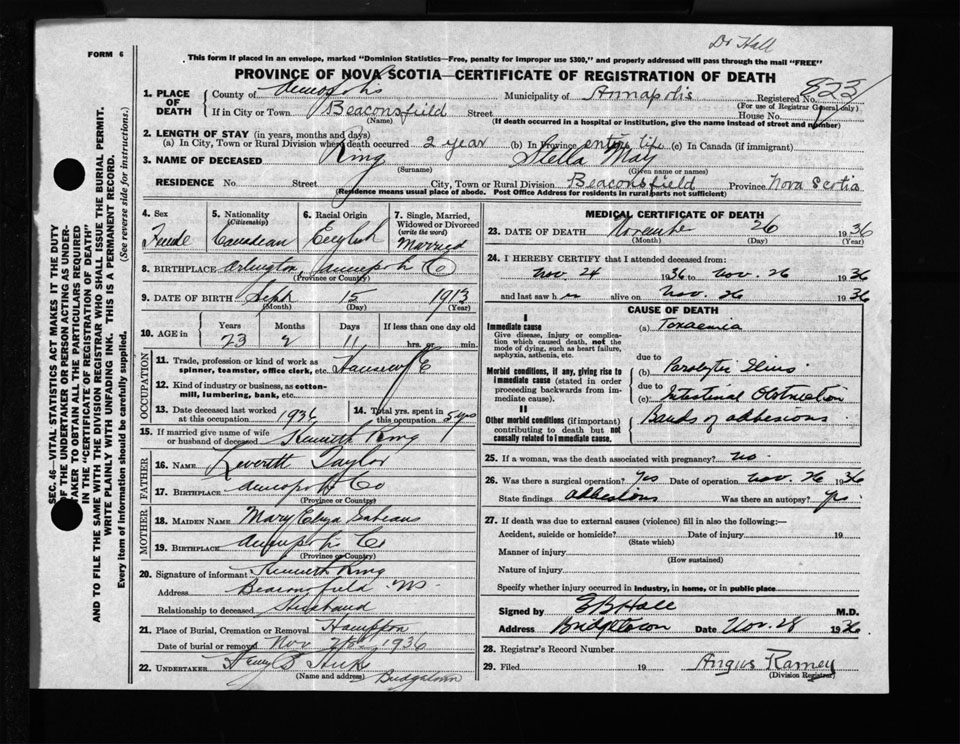 Dr Hall
FORM 6
This form if placed in an envelope, marked "Dominion Statistics—Free, penalty for improper use $300," and properly addressed will pass through the mail "FREE"
PROVINCE OF NOVA SCOTIA—CERTIFICATE OF REGISTRATION OF DEATH
823
1. PLACE OF DEATH
County of Annapolis Municipality of Annapolis Registered No.
(For use of Registrar General only)
If in City or Town Beaconsfield Street House No.
(Name) (If death occurred in a hospital or institution, give the name instead of street and number)
2. LENGTH OF STAY (in years, months and days)
(a) In City, Town or Rural Division where death occurred 2 year (b) In Province entire life (c) In Canada (if immigrant)
3. NAME OF DECEASED King Stella May
(Surname) (Given name or names)
RESIDENCE No. Street City, Town or Rural Division Beaconsfield Province Nova Scotia
(Residence means usual place of abode. Post Office Address for residents in rural parts not sufficient)
4. Sex
5. Nationality (Citizenship) Canadian
6. Racial Origin English
7. Single, Married, Widowed or Divorced (write the word) Married
8. BIRTHPLACE Arlington, Annapolis Co
(Province or Country)
9. DATE OF BIRTH Sept 15 1913
(Month) (Day) (Year)
10. AGE in Years Months Days If less than one day old
23 2 11 hrs. or min.
OCCUPATION
11. Trade, profession or kind of work as spinner, teamster, office clerk, etc.
12. Kind of industry or business, as cotton-mill, lumbering, bank, etc.
13. Date deceased last worked at this occupation 1936
14. Total yrs. spent in this occupation 5 yrs
15. If married give name of wife or husband of deceased Kenneth King
FATHER
16. NAME Leverett Taylor
17. BIRTHPLACE Annapolis Co
(Province or Country)
MOTHER
18. MAIDEN NAME Mary Eliza Sabeans
19. BIRTHPLACE Annapolis Co
(Province or Country)
20. Signature of informant Kenneth King
Address Beaconsfield NS
Relationship to deceased Husband
21. Place of Burial, Cremation or Removal Hampton
Date of burial or removal Nov 28 1936
22. UNDERTAKER
(Name and address) Bridgetown
MEDICAL CERTIFICATE OF DEATH
23. DATE OF DEATH November 26 1936
(Month) (Day) (Year)
24. I HEREBY CERTIFY that I attended deceased from:
Nov. 24 1936 to Nov. 26 1936
and last saw her alive on Nov. 26 1936
CAUSE OF DEATH
I
Immediate cause
Give disease, injury or complication which caused death, not the mode of dying, such as heart failure, asphyxia, asthenia, etc.
(a) Toxaemia
due to
Morbid conditions, if any, giving rise to immediate cause (stated in order proceeding backwards from immediate cause).
(b) Paralytic Ileus
due to
(c) Intestinal Obstruction
II
Other morbid conditions (if important) contributing to death but not causally related to immediate cause.
Bands of adhesions
25. If a woman, was the death associated with pregnancy? no.
26. Was there a surgical operation? Yes Date of operation Nov. 26 1936
State findings adhesions Was there an autopsy? yes
27. If death was due to external causes (violence) fill in also the following:—
Accident, suicide or homicide? Date of injury 19
(State which)
Manner of injury
(How sustained)
Nature of injury
Specify whether injury occurred in industry, in home, or in public place
Signed by E B Hall M.D.
Address Bridgetown Date Nov. 28 1936
28. Registrar's Record Number
29. Filed 19 Angus Ramey
(Division Registrar)
SEC. 46—VITAL STATISTICS ACT MAKES IT THE DUTY OF THE UNDERTAKER OR PERSON ACTING AS UNDERTAKER TO OBTAIN ALL THE PARTICULARS REQUIRED IN THE "CERTIFICATE OF REGISTRATION OF DEATH"
AND TO FILE THE SAME WITH THE DIVISION REGISTRAR WHO SHALL ISSUE THE BURIAL PERMIT.
WRITE PLAINLY WITH UNFADING INK. THIS IS A PERMANENT RECORD.
Every item of information should be carefully supplied. (See reverse side for instructions.)